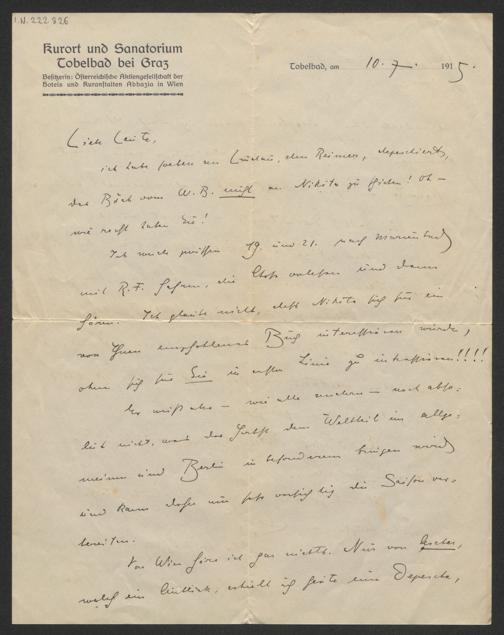 I.N. 222.826
Kurort und Sanatorium
Tobelbad bei Graz
Besitzerin: Österreichische Aktiengesellschaft der
Hotels und Kuranstalten Abbazia in Wien
Tobelbad, am 10. 7. 1915.
Liebe Leute,
ich habe soeben an den Reimers, depeschiert,
das Buch vom W. B. nicht an Nikita zu geben! Oh –
wie recht haben Sie!
Ich werde zwischen 19. und 21. nach Marienbad
mit R. F. fahren, die vorlesen und dann
hören. Ich glaube nicht, daß Nikita sich für ein
von Ihnen empfohlenes Buch interessieren würde,
ohne sich für Sie in erster Linie zu interessieren!!!!
Er weiß also – wie alle andern – noch abso-
lut nicht, was der Herbst dem Weltteil im allge-
meinen und Berlin im besonderen bringen wird
und kann daher nur sehr vorsichtig die Saison vor-
bereiten.
Von Wien höre ich gar nichts. Nur von
ein, erhielt ich heute eine Depesche,